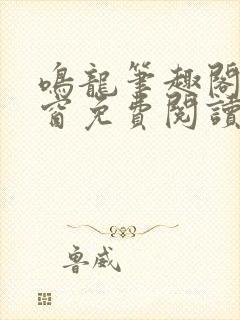 鳴龍筆趣閣
窗免費閱讀
魯威